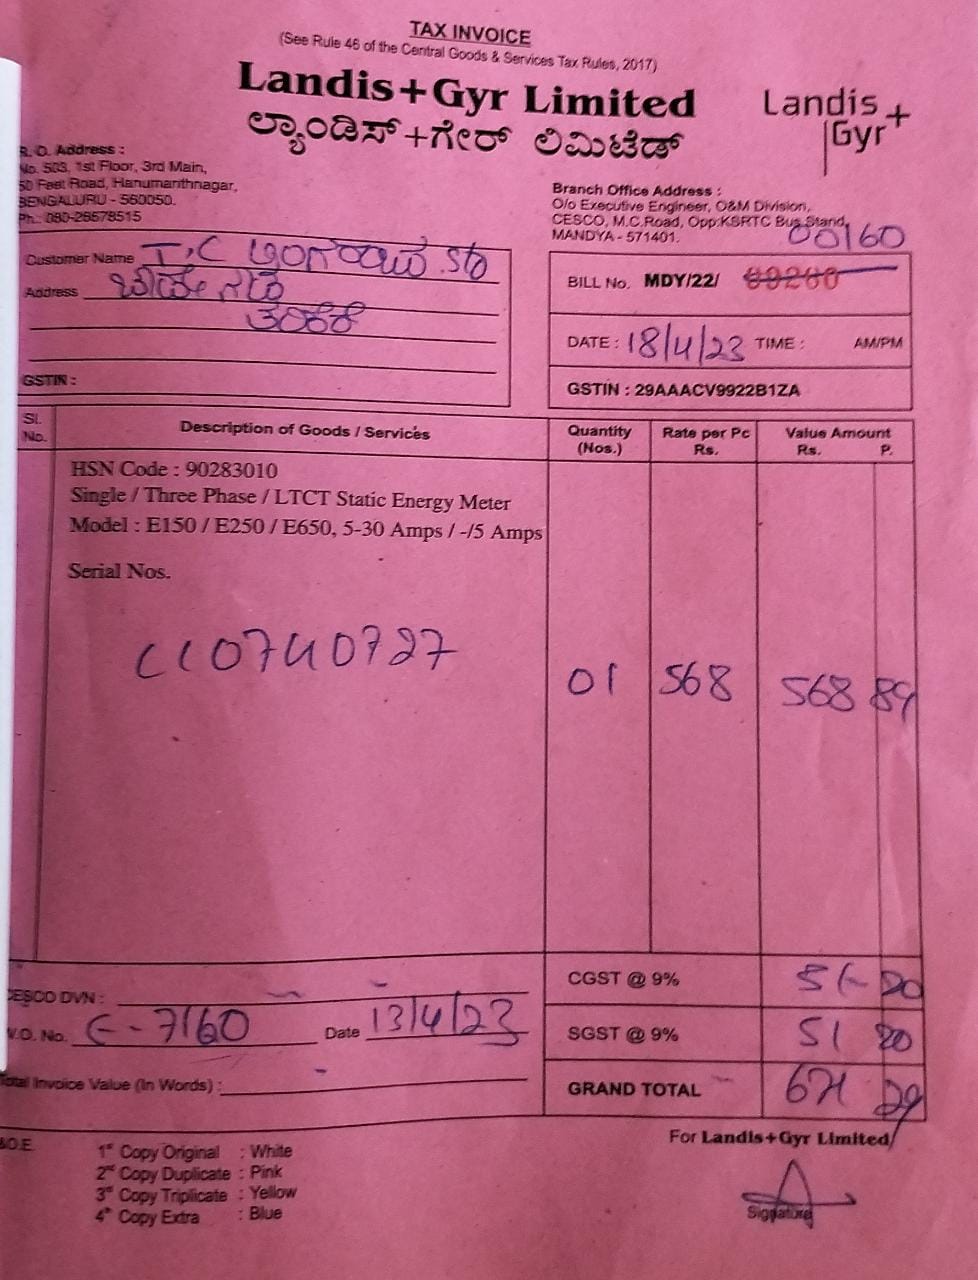 TAX INVOICE
(See Rule 46 of the Central Goods & Services Tax Rules, 2017)
Landis+Gyr Limited
ಲ್ಯಾಂಡಿಸ್+ಗೇರ್ ಲಿಮಿಟೆಡ್
Landis+
Gyr
R. O. Address :
No. 503, 1st Floor, 3rd Main,
50 Feet Road, Hanumanthnagar,
BENGALURU - 560050.
Ph.: 080-26678515
Branch Office Address :
O/o Executive Engineer, O&M Division,
CESCO, M.C.Road, Opp:KSRTC Bus Stand,
MANDYA - 571401.
00160
Customer Name T.C
Address
GSTIN :
BILL No. MDY/22/ 00260
DATE : 18/4/23 TIME : AM/PM
GSTIN : 29AAACV9922B1ZA
Sl. No. Description of Goods / Services Quantity (Nos.) Rate per Pc Rs. Value Amount Rs. P.
HSN Code : 90283010
Single / Three Phase / LTCT Static Energy Meter
Model : E150 / E250 / E650, 5-30 Amps / -/5 Amps
Serial Nos.
CC0740727 01 568 568 89
CGST @ 9% 51 20
CESCO DVN :
W.O. No. E-7160 Date 13/4/23
SGST @ 9% 51 20
Total Invoice Value (In Words) :
GRAND TOTAL 671 29
&O.E.
For Landis+Gyr Limited
1st Copy Original : White
2nd Copy Duplicate : Pink
3rd Copy Triplicate : Yellow
4th Copy Extra : Blue
Signature